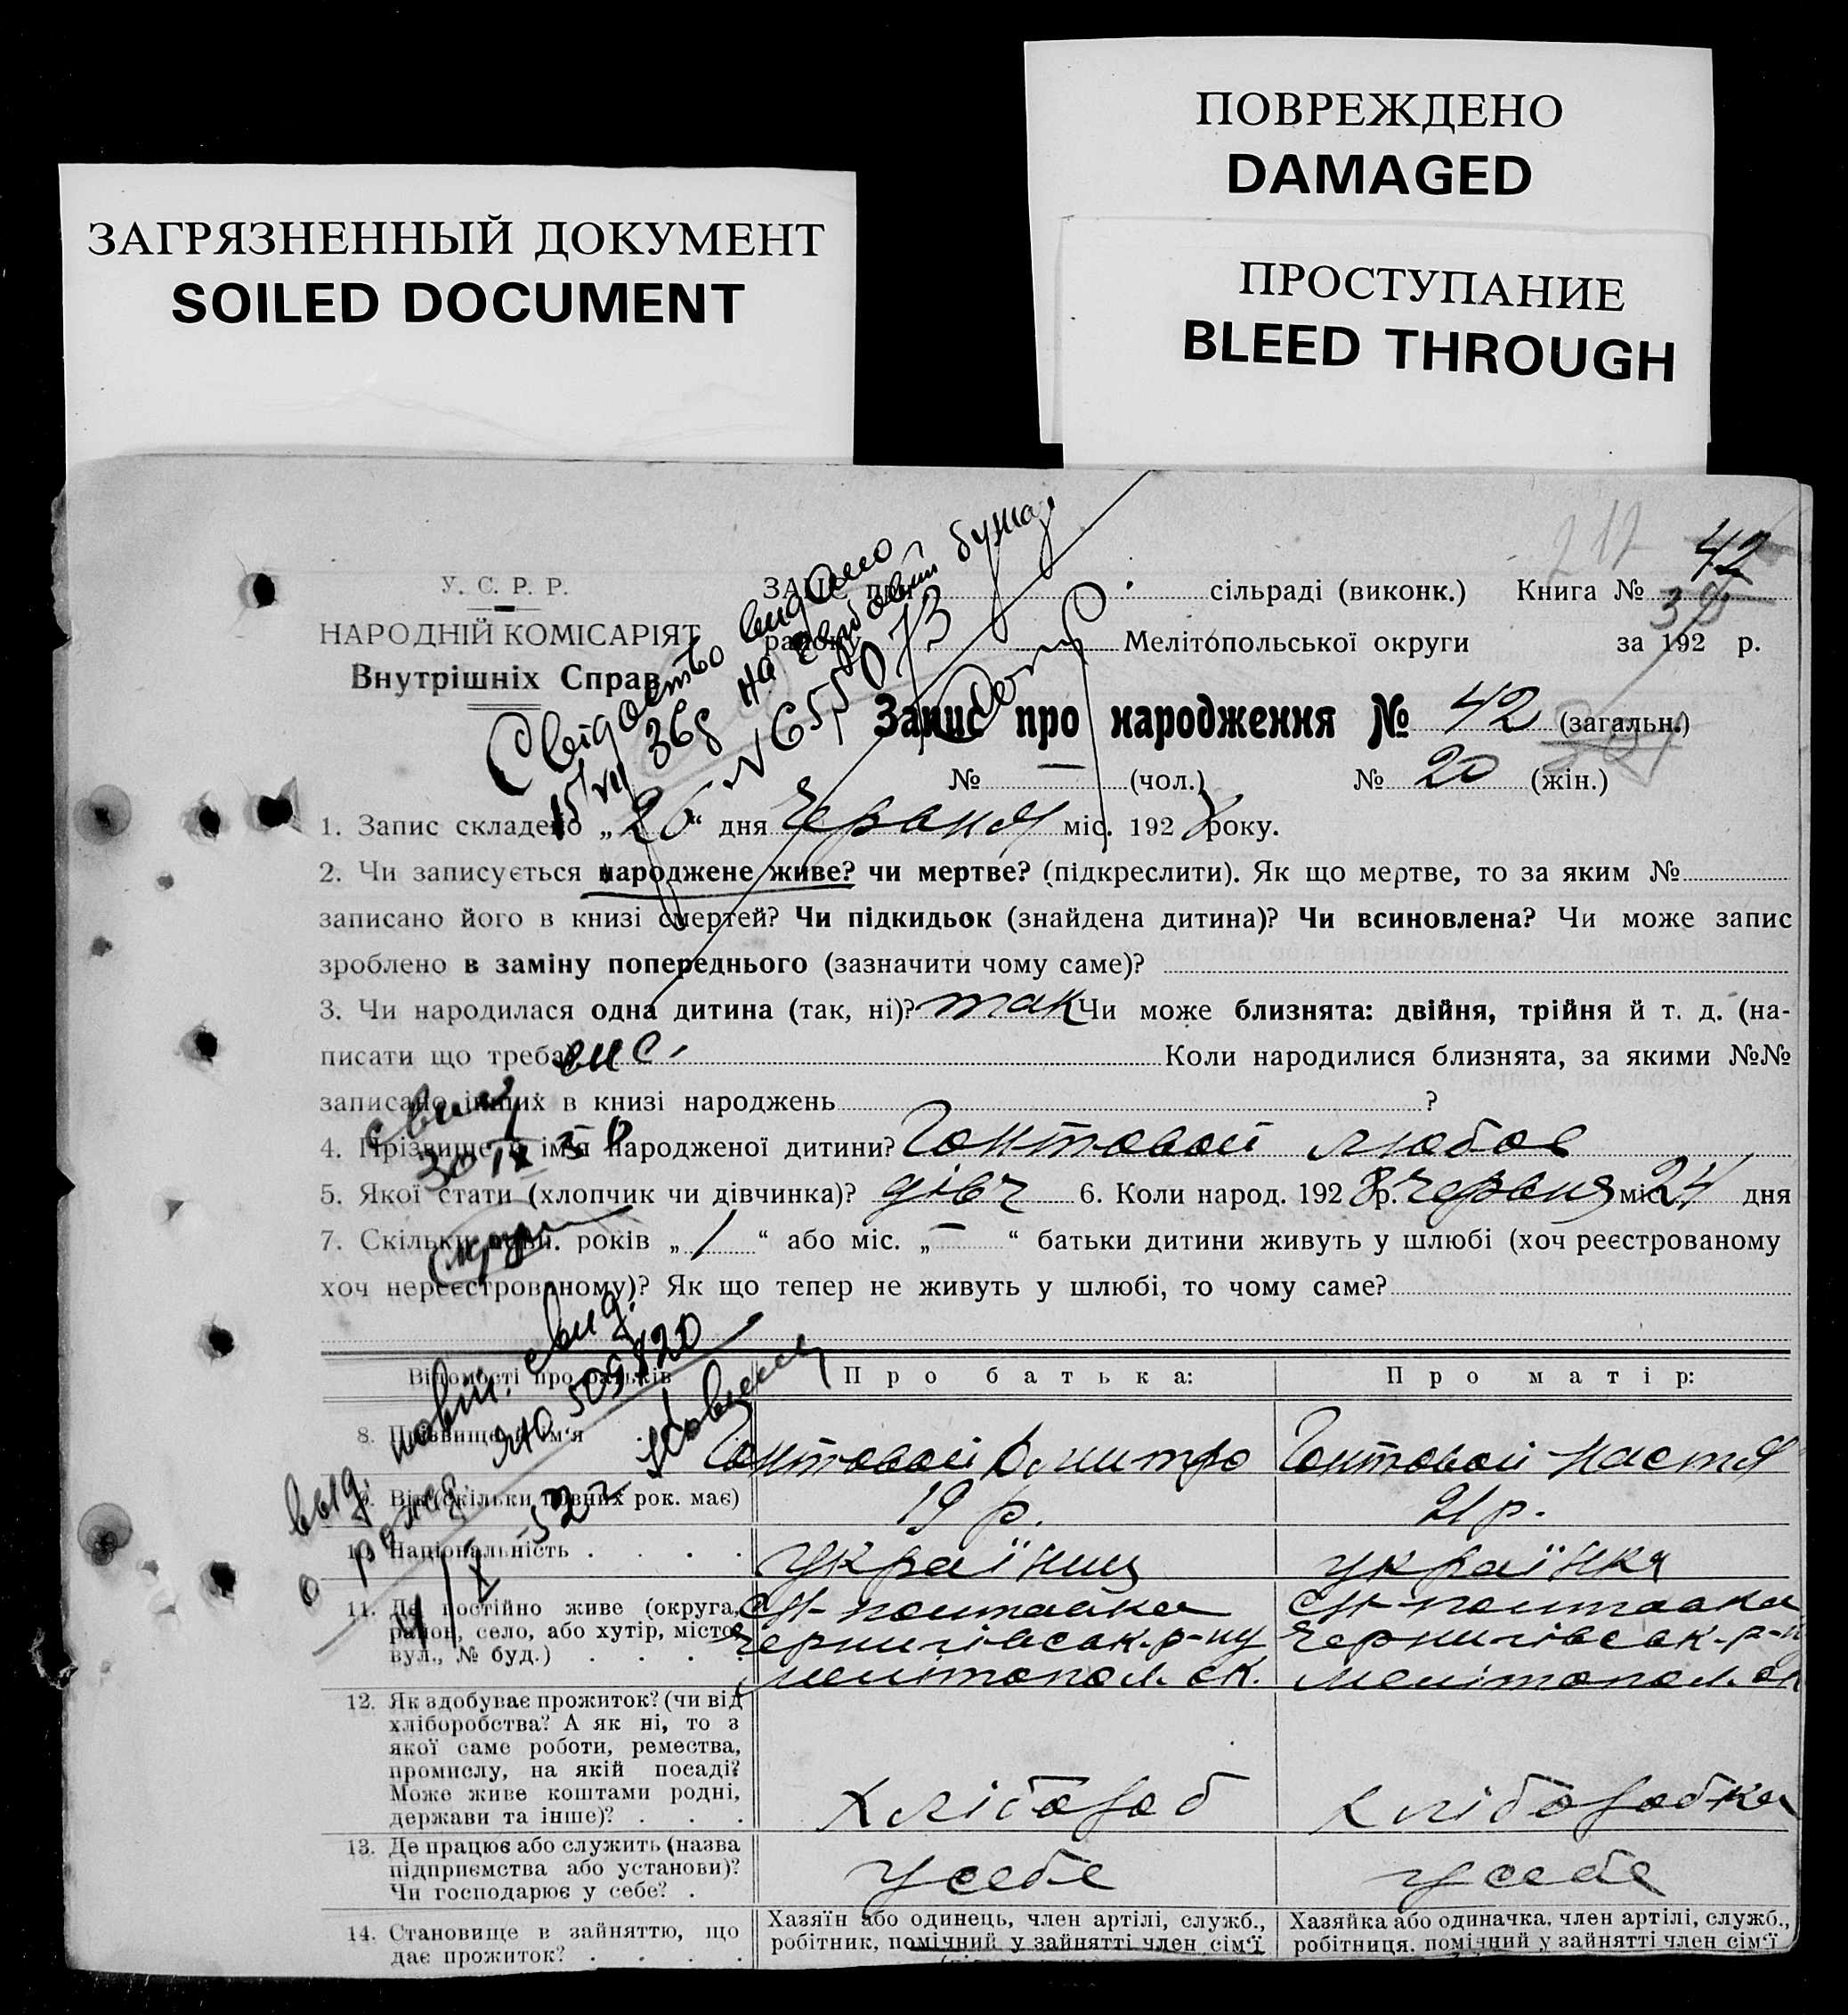 ПОВРЕЖДЕНО
DAMAGED
ЗАГРЯЗНЕННЫЙ ДОКУМЕНТ
SOILED DOCUMENT
ПРОСТУПАНИЕ
BLEED THROUGH
217 42
У. С. Р. Р.
ЗАПИС при сільраді (виконк.) Книга №
НАРОДНІЙ КОМІСАРІЯТ
району Мелітопольської округи за 192 р.
Внутрішніх Справ
Свідоцтво видано
15/VII 36g на гербовій бумаз
№ 6550
Запис про народження № 42 (загальн.)
№ — (чол.) № 20 (жін.)
1. Запис складено „26“ дня Червня міс. 1928 року.
2. Чи записується народжене живе? чи мертве? (підкреслити). Як що мертве, то за яким №
записано його в книзі смертей? Чи підкидьок (знайдена дитина)? Чи всиновлена? Чи може запис
зроблено в заміну попереднього (зазначити чому саме)?
3. Чи народилася одна дитина (так, ні)? так Чи може близнята: двійня, трійня й т. д. (на-
писати що треба) Коли народилися близнята, за якими №№
записано інших в книзі народжень ?
4. Прізвище й ім'я народженої дитини? Гонтовой Любов
30 IX
5. Якої стати (хлопчик чи дівчинка)? дівч 6. Коли народ. 1928 р. червня міс. 24 дня
7. Скільки повн. років „1“ або міс. „—“ батьки дитини живуть у шлюбі (хоч реєстрованому
хоч нереєстрованому)? Як що тепер не живуть у шлюбі, то чому саме?
выд. повт. свид.
Відомості про батьків Про батька: Про матір:
8. Прізвище й ім'я Гонтовой Дмитро Гонтовой Настя
9. Вік (скільки повних рок. має) 19 р. 21 р.
10. Національність . . . . українец українка
11. Де постійно живе (округа, район, село, або хутір, місто, вул., № буд.) . . . .
Сн-полтавка Сн-полтавка
Чернигівськ. р-ну Чернигівськ. р-н
мелітопол. ок. мелітопол. ок
12. Як здобуває прожиток? (чи від
хліборобства? А як ні, то з
якої саме роботи, ремества,
промислу, на якій посаді?
Може живе коштами родні,
держави та інше)? . . .
Хлібороб Хліборобка
13. Де працює або служить (назва
підприємства або установи)?
Чи господарює у себе? .
у себе у себе
14. Становище в зайняттю, що
дає прожиток? . . . .
Хазяїн або одинець, член артілі, служб.,
робітник, помічний у зайнятті член сім'ї
Хазяйка або одиначка, член артілі, служб.,
робітниця, помічний у зайнятті член сім'ї